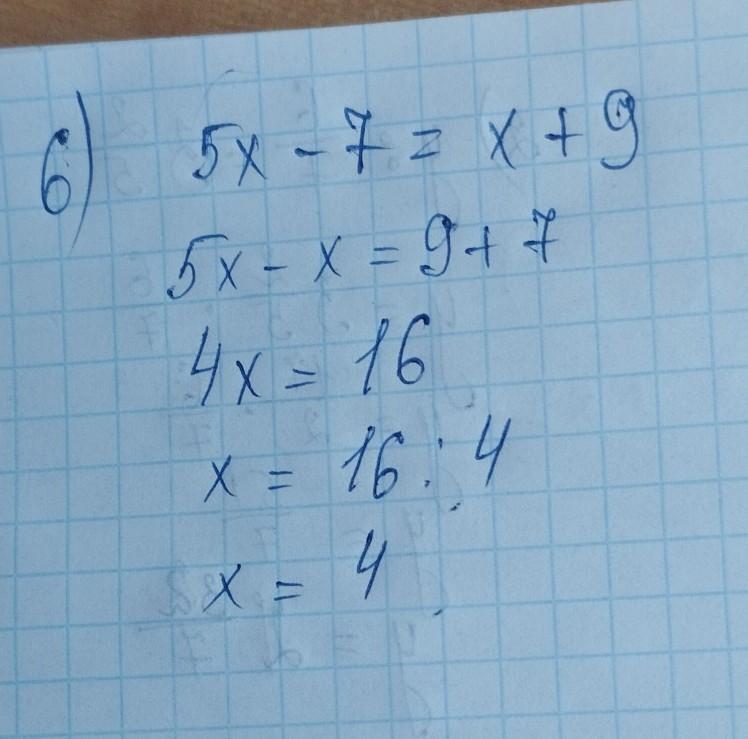 6) 5x - 7 = x + 9
5x - x = 9 + 7
4x = 16
x = 16 : 4
x = 4